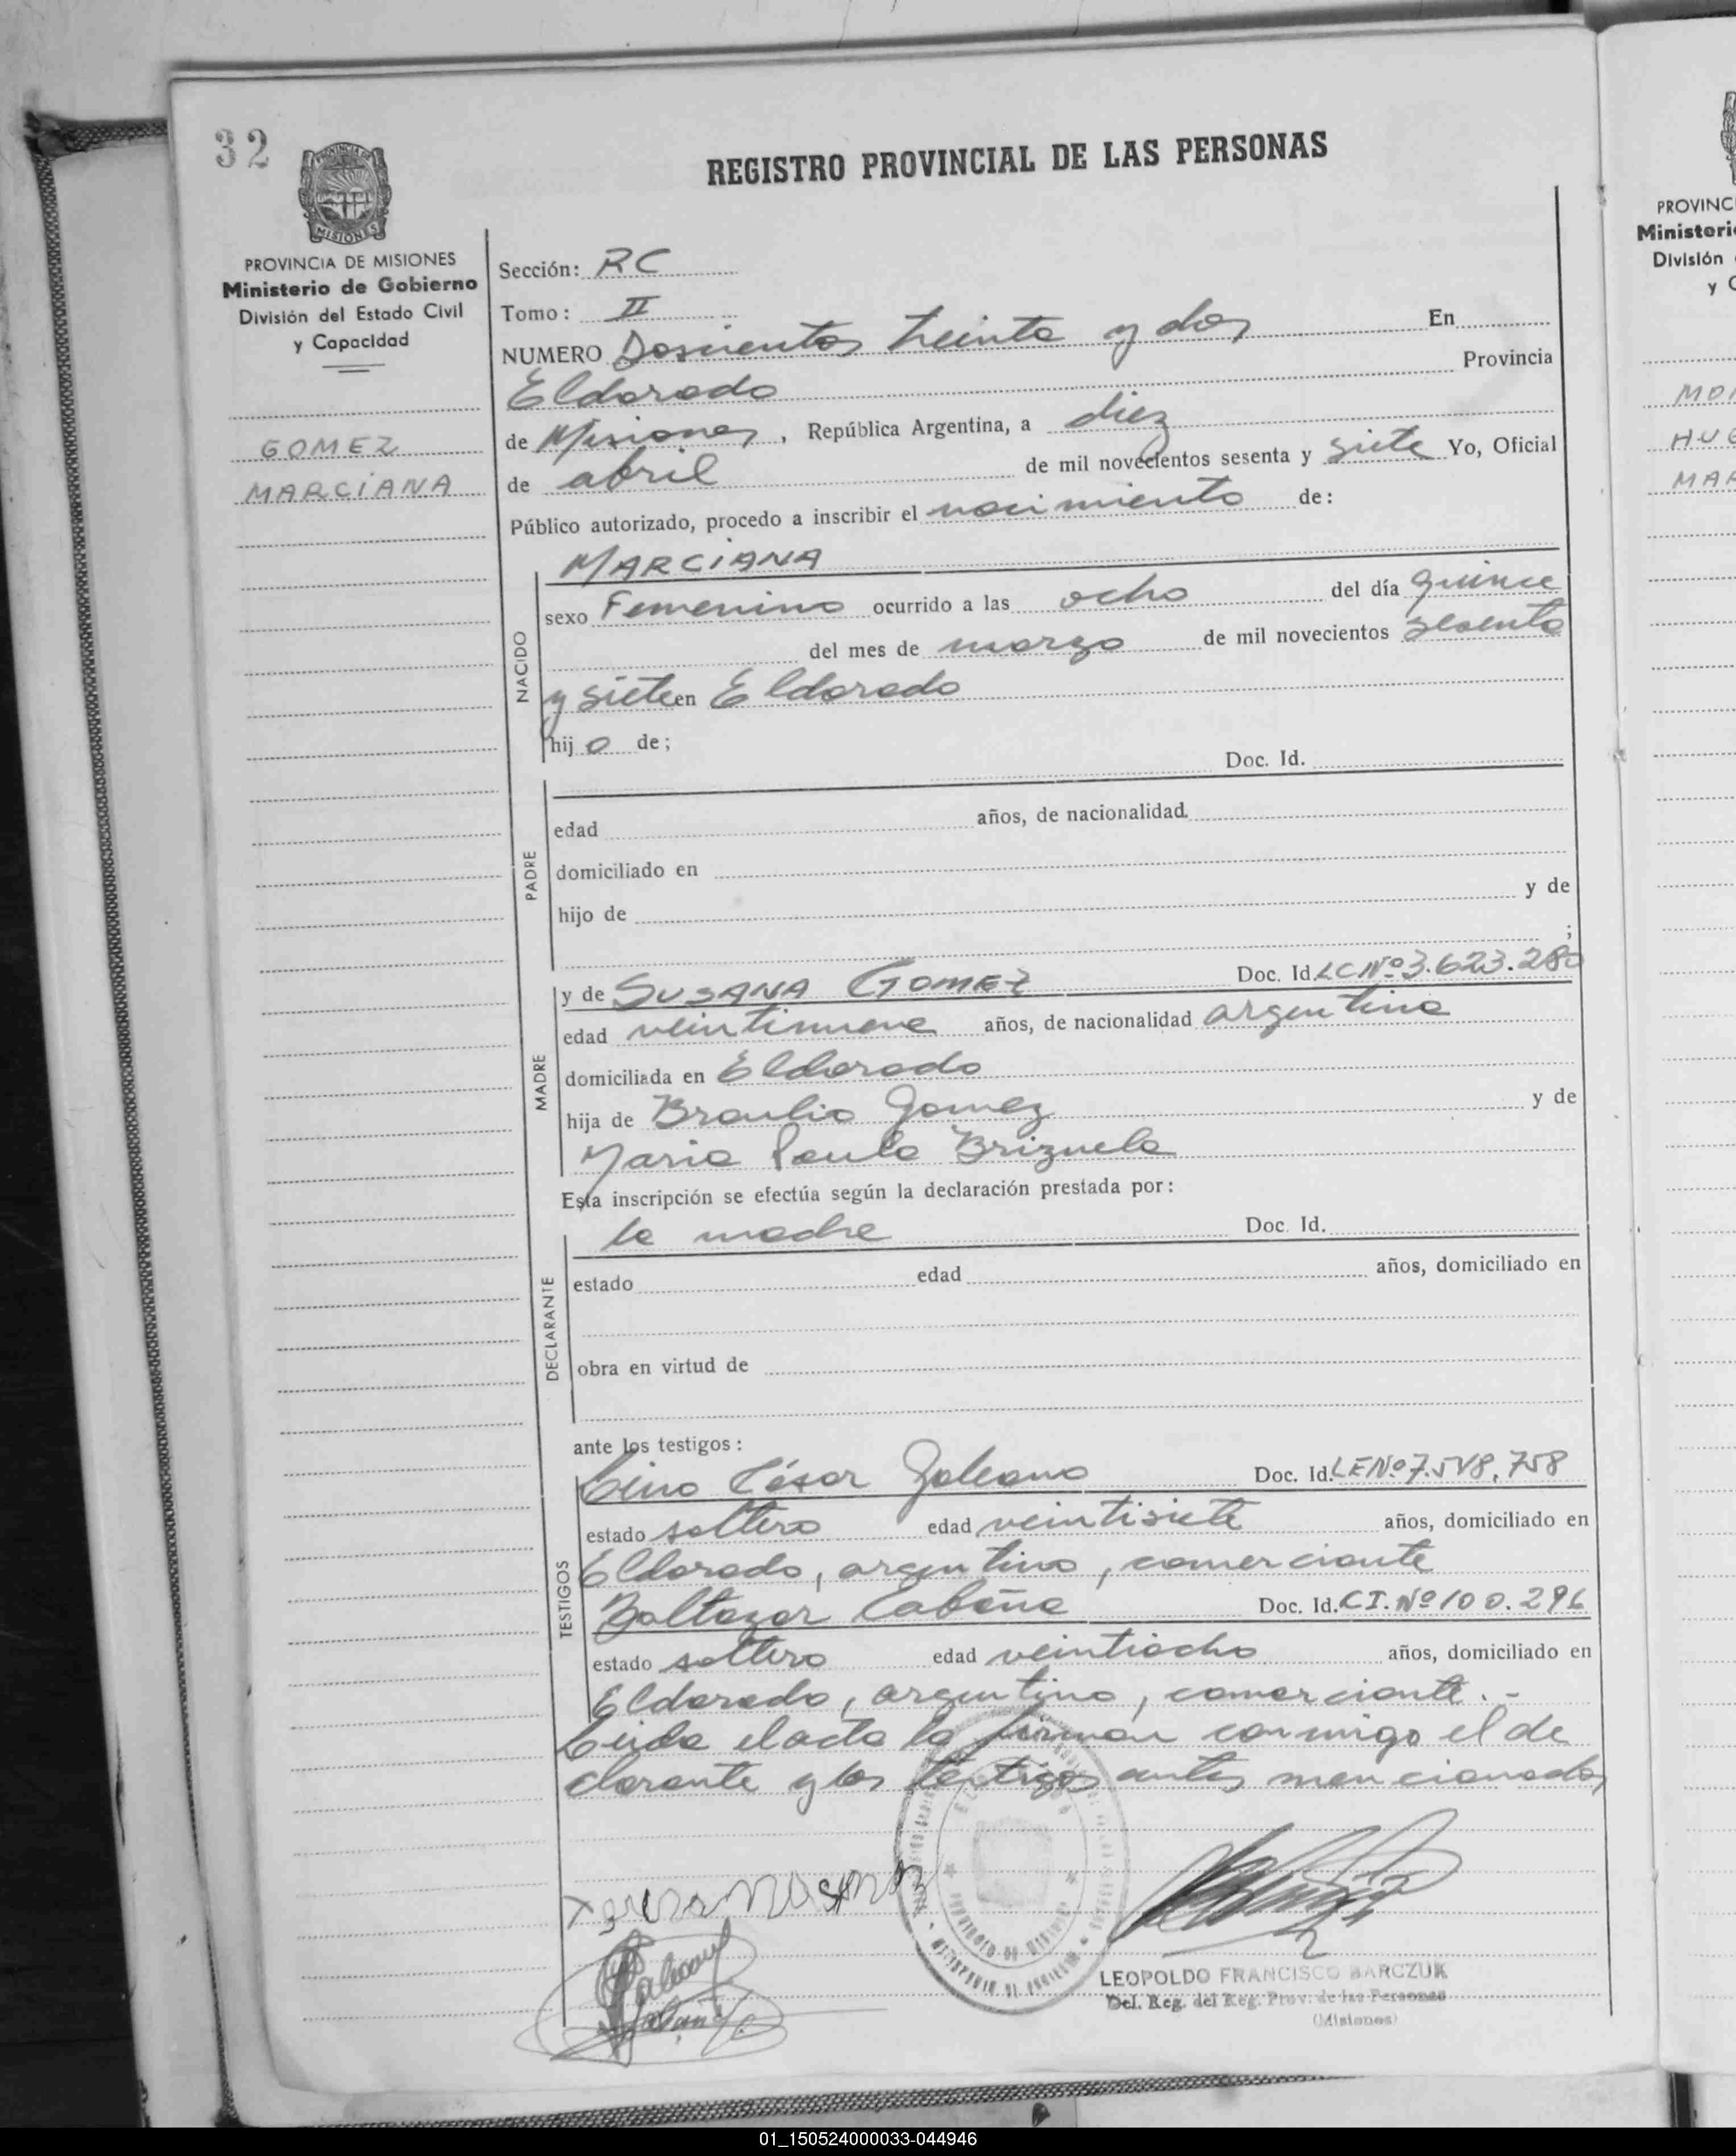 32
REGISTRO PROVINCIAL DE LAS PERSONAS
PROVINCIA DE MISIONES
Ministerio de Gobierno
División del Estado Civil
y Capacidad
GOMEZ
MARCIANA
Sección: RC
Tomo: II
NUMERO Doscientos treinta y dos En
Eldorado Provincia
de Misiones, República Argentina, a diez
de abril de mil novecientos sesenta y siete Yo, Oficial
Público autorizado, procedo a inscribir el nacimiento de:
NACIDO
MARCIANA
sexo Femenino ocurrido a las ocho del día quince
del mes de marzo de mil novecientos sesenta
y siete en Eldorado
hij a de;
PADRE
Doc. Id.
edad años, de nacionalidad
domiciliado en
hijo de y de
;
MADRE
y de SUSANA GOMEZ Doc. Id. LC Nº 3.623.280
edad veintinueve años, de nacionalidad argentina
domiciliada en Eldorado
hija de Braulio Gomez y de
Maria Paula Brizuela
Esta inscripción se efectúa según la declaración prestada por:
DECLARANTE
la madre Doc. Id.
estado edad años, domiciliado en
obra en virtud de
ante los testigos:
TESTIGOS
Lino César Galeano Doc. Id. LE Nº 7.548.758
estado soltero edad veintisiete años, domiciliado en
Eldorado, argentino, comerciante
Baltazar Cabaña Doc. Id. CI. Nº 100.296
estado soltero edad veintiocho años, domiciliado en
Eldorado, argentino, comerciante.-
Leida el acta la firman conmigo el de
clarante y los testigos antes mencionados
LEOPOLDO FRANCISCO BARCZUK
Del. Reg. del Reg. Prov. de las Personas
(Misiones)
PROVINC
Ministeri
División
y C
MAR
01_150524000033-044946